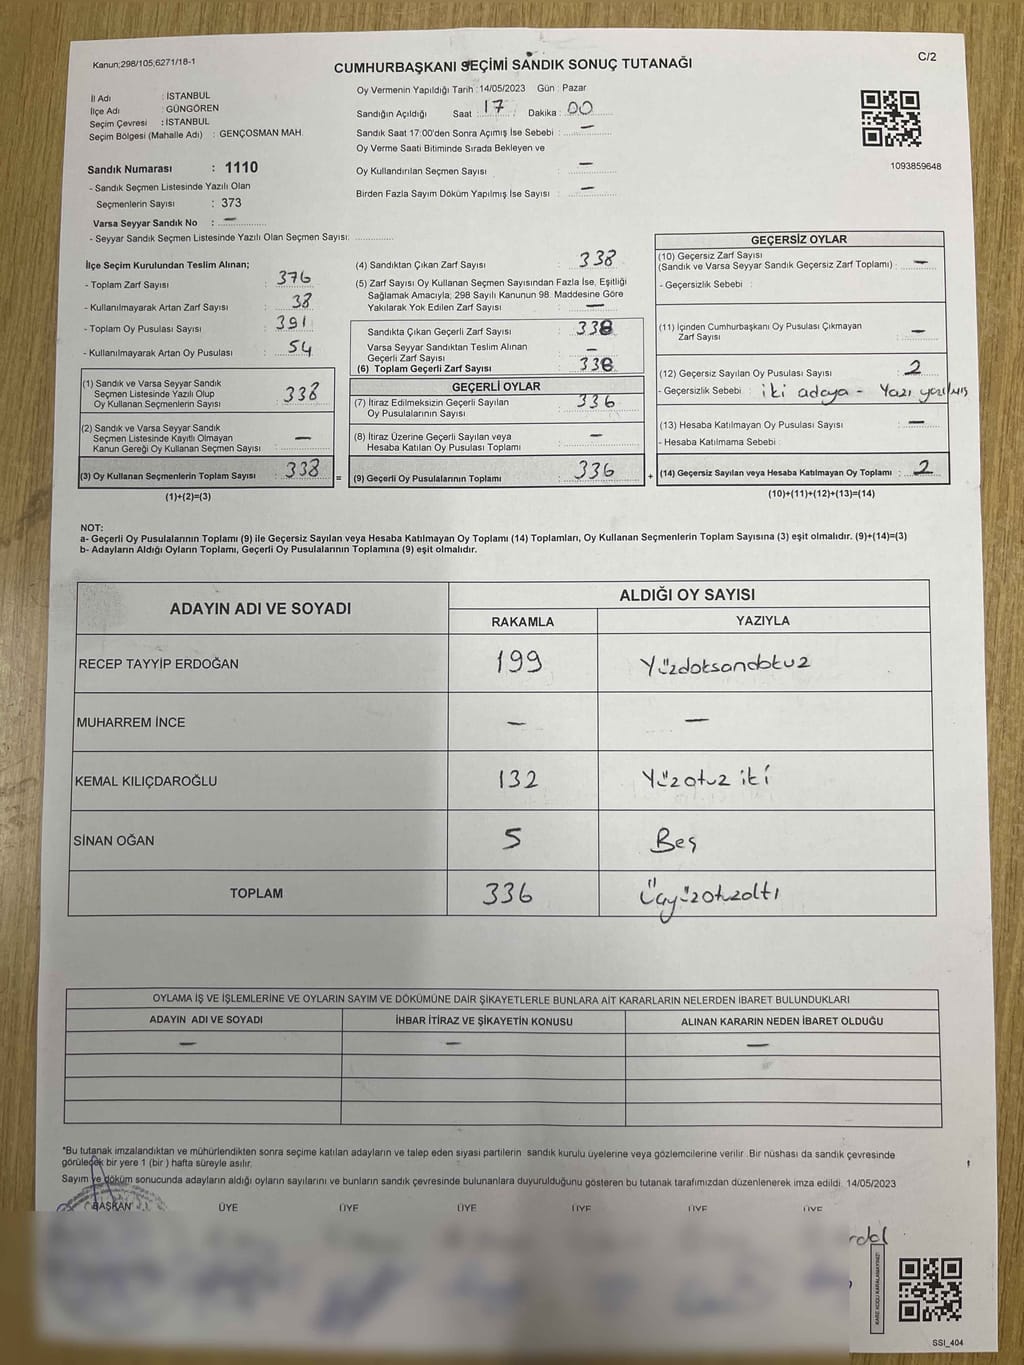 Kanun;298/105;6271/18-1
CUMHURBAŞKANI SEÇİMİ SANDIK SONUÇ TUTANAĞI
C/2
İl Adı : İSTANBUL
İlçe Adı : GÜNGÖREN
Seçim Çevresi : İSTANBUL
Seçim Bölgesi (Mahalle Adı) : GENÇOSMAN MAH.
Sandık Numarası : 1110
- Sandık Seçmen Listesinde Yazılı Olan
Seçmenlerin Sayısı : 373
Varsa Seyyar Sandık No : —
- Seyyar Sandık Seçmen Listesinde Yazılı Olan Seçmen Sayısı: ............
Oy Vermenin Yapıldığı Tarih : 14/05/2023 Gün : Pazar
Sandığın Açıldığı Saat : 17 Dakika : 00
Sandık Saat 17:00'den Sonra Açımış İse Sebebi : —
Oy Verme Saati Bitiminde Sırada Bekleyen ve
Oy Kullandırılan Seçmen Sayısı : —
Birden Fazla Sayım Döküm Yapılmış İse Sayısı : —
1093859648
İlçe Seçim Kurulundan Teslim Alınan;
- Toplam Zarf Sayısı : 376
- Kullanılmayarak Artan Zarf Sayısı : 38
- Toplam Oy Pusulası Sayısı : 391
- Kullanılmayarak Artan Oy Pusulası : 54
(1) Sandık ve Varsa Seyyar Sandık
Seçmen Listesinde Yazılı Olup
Oy Kullanan Seçmenlerin Sayısı : 338
(2) Sandık ve Varsa Seyyar Sandık
Seçmen Listesinde Kayıtlı Olmayan
Kanun Gereği Oy Kullanan Seçmen Sayısı : —
(3) Oy Kullanan Seçmenlerin Toplam Sayısı : 338 =
(1)+(2)=(3)
(4) Sandıktan Çıkan Zarf Sayısı : 338
(5) Zarf Sayısı Oy Kullanan Seçmen Sayısından Fazla İse, Eşitliği
Sağlamak Amacıyla; 298 Sayılı Kanunun 98. Maddesine Göre
Yakılarak Yok Edilen Zarf Sayısı : —
Sandıkta Çıkan Geçerli Zarf Sayısı : 338
Varsa Seyyar Sandıktan Teslim Alınan
Geçerli Zarf Sayısı : —
(6) Toplam Geçerli Zarf Sayısı : 338
GEÇERLİ OYLAR
(7) İtiraz Edilmeksizin Geçerli Sayılan
Oy Pusulalarının Sayısı : 336
(8) İtiraz Üzerine Geçerli Sayılan veya
Hesaba Katılan Oy Pusulaları Toplamı : —
(9) Geçerli Oy Pusulalarının Toplamı : 336 +
GEÇERSİZ OYLAR
(10) Geçersiz Zarf Sayısı
(Sandık ve Varsa Seyyar Sandık Geçersiz Zarf Toplamı) : —
- Geçersizlik Sebebi :
(11) İçinden Cumhurbaşkanı Oy Pusulası Çıkmayan
Zarf Sayısı : —
(12) Geçersiz Sayılan Oy Pusulası Sayısı : 2
- Geçersizlik Sebebi : iki adaya - Yazı yazılmış
(13) Hesaba Katılmayan Oy Pusulası Sayısı : —
- Hesaba Katılmama Sebebi :
(14) Geçersiz Sayılan veya Hesaba Katılmayan Oy Toplamı : 2
(10)+(11)+(12)+(13)=(14)
NOT:
a- Geçerli Oy Pusulalarının Toplamı (9) ile Geçersiz Sayılan veya Hesaba Katılmayan Oy Toplamı (14) Toplamları, Oy Kullanan Seçmenlerin Toplam Sayısına (3) eşit olmalıdır. (9)+(14)=(3)
b- Adayların Aldığı Oyların Toplamı, Geçerli Oy Pusulalarının Toplamına (9) eşit olmalıdır.
ADAYIN ADI VE SOYADI ALDIĞI OY SAYISI
RAKAMLA YAZIYLA
RECEP TAYYİP ERDOĞAN 199 Yüzdoksandokuz
MUHARREM İNCE — —
KEMAL KILIÇDAROĞLU 132 Yüzotuz iki
SİNAN OĞAN 5 Beş
TOPLAM 336 Üçyüzotuzaltı
OYLAMA İŞ VE İŞLEMLERİNE VE OYLARIN SAYIM VE DÖKÜMÜNE DAİR ŞİKAYETLERLE BUNLARA AİT KARARLARIN NELERDEN İBARET BULUNDUKLARI
ADAYIN ADI VE SOYADI İHBAR İTİRAZ VE ŞİKAYETİN KONUSU ALINAN KARARIN NEDEN İBARET OLDUĞU
— — —
"Bu tutanak imzalandıktan ve mühürlendikten sonra seçime katılan adayların ve talep eden siyasi partilerin sandık kurulu üyelerine veya gözlemcilerine verilir. Bir nüshası da sandık çevresinde
görülecek bir yere 1 (bir ) hafta süreyle asılır.
Sayım ve döküm sonucunda adayların aldığı oyların sayılarını ve bunların sandık çevresinde bulunanlara duyurulduğunu gösteren bu tutanak tarafımızdan düzenlenerek imza edildi. 14/05/2023
BAŞKAN ÜYE ÜYE ÜYE ÜYE ÜYE ÜYE
KARE KODU KARALAMAYINIZ!
SSI_404